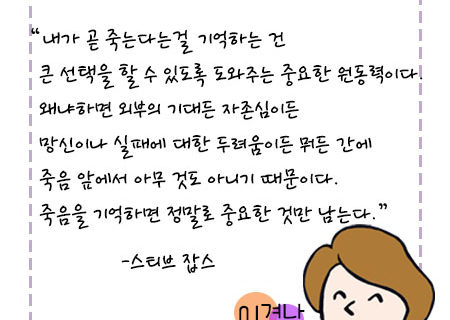 “내가 곧 죽는다는걸 기억하는 건
큰 선택을 할 수 있도록 도와주는 중요한 원동력이다.
왜냐하면 외부의 기대든 자존심이든
망신이나 실패에 대한 두려움이든 뭐든 간에
죽음 앞에서 아무 것도 아니기 때문이다.
죽음을 기억하면 정말로 중요한 것만 남는다.”
-스티브 잡스